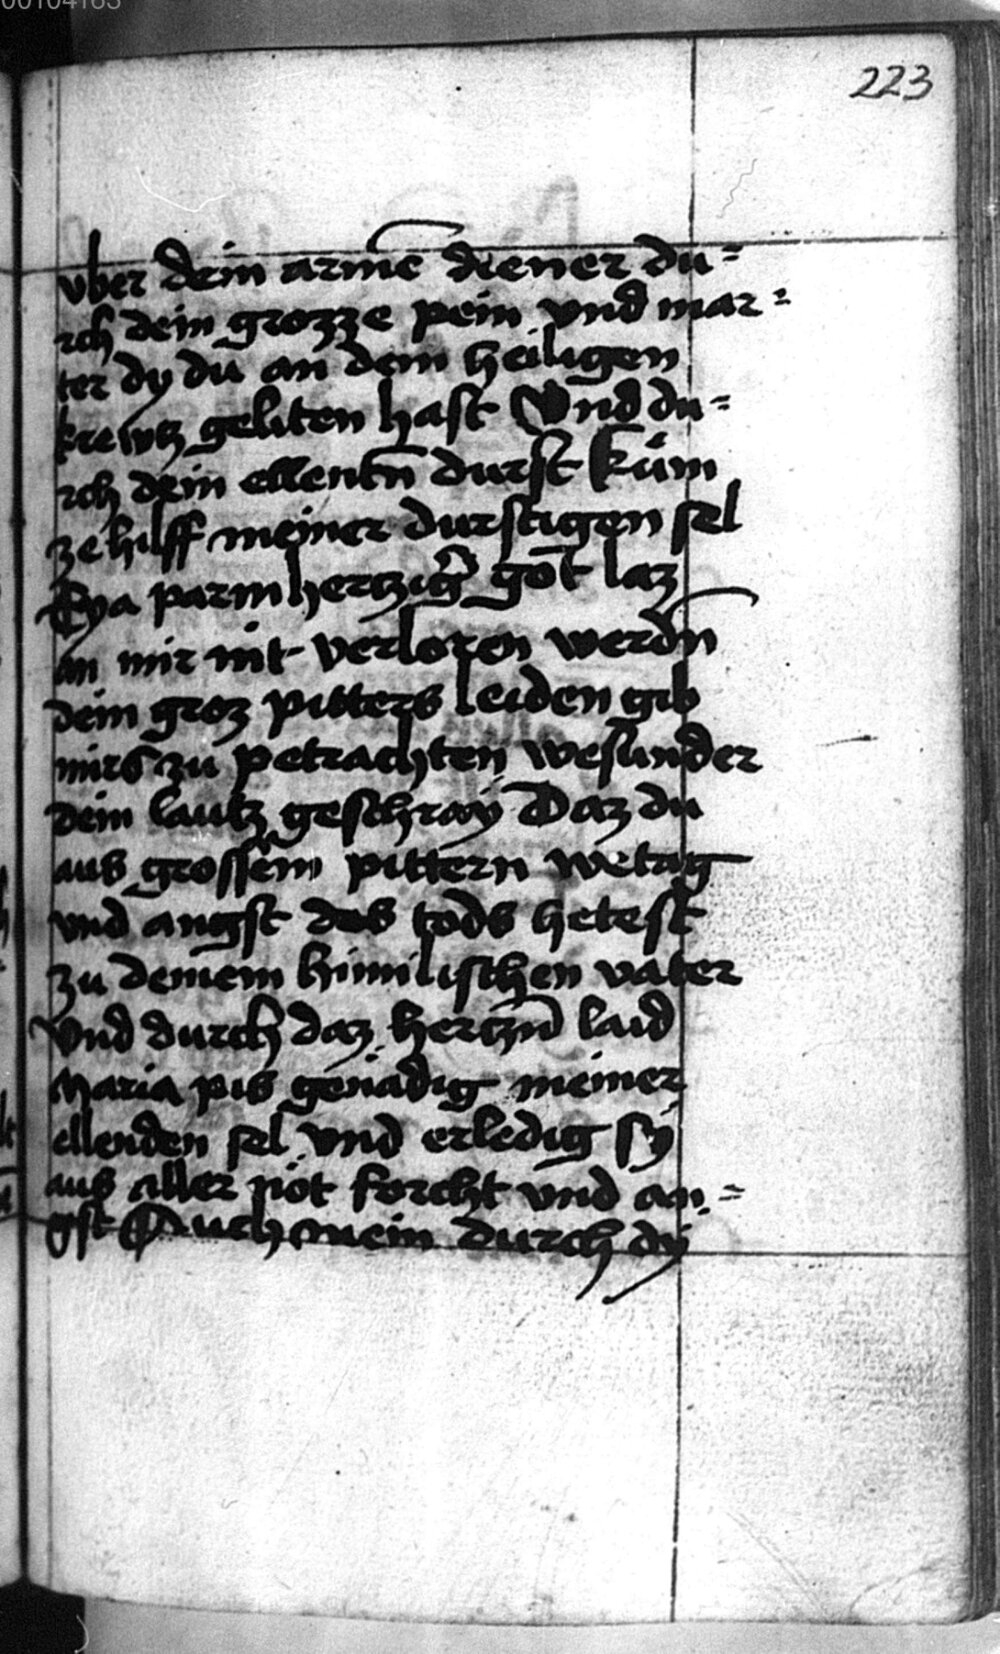 00104163
223
vber dein arme̅ diener du=
rch dein grozze pein vnd mar=
ter dy du an dem heiligen
krewtz geliten hast Vnd du=
rch dein ellentn̅ durst kum̅
ze hilff meiner durstigen sel
Eya parmhertzig̕ got laz
an mir nit verloren werdn̅
dein groz pitters leiden gib
mirs zu petrachten wesunder
dein lautz geschray Daz du
aus grossem pittern wetag
vnd angst des tods hetest
zu deinem himilischen vater
Vnd durch daz hertzn̅ laid
Maria pis genädig meiner
ellenden sel vnd erledig sy
aus aller not forcht vnd an=
gst Auch mein durch dy